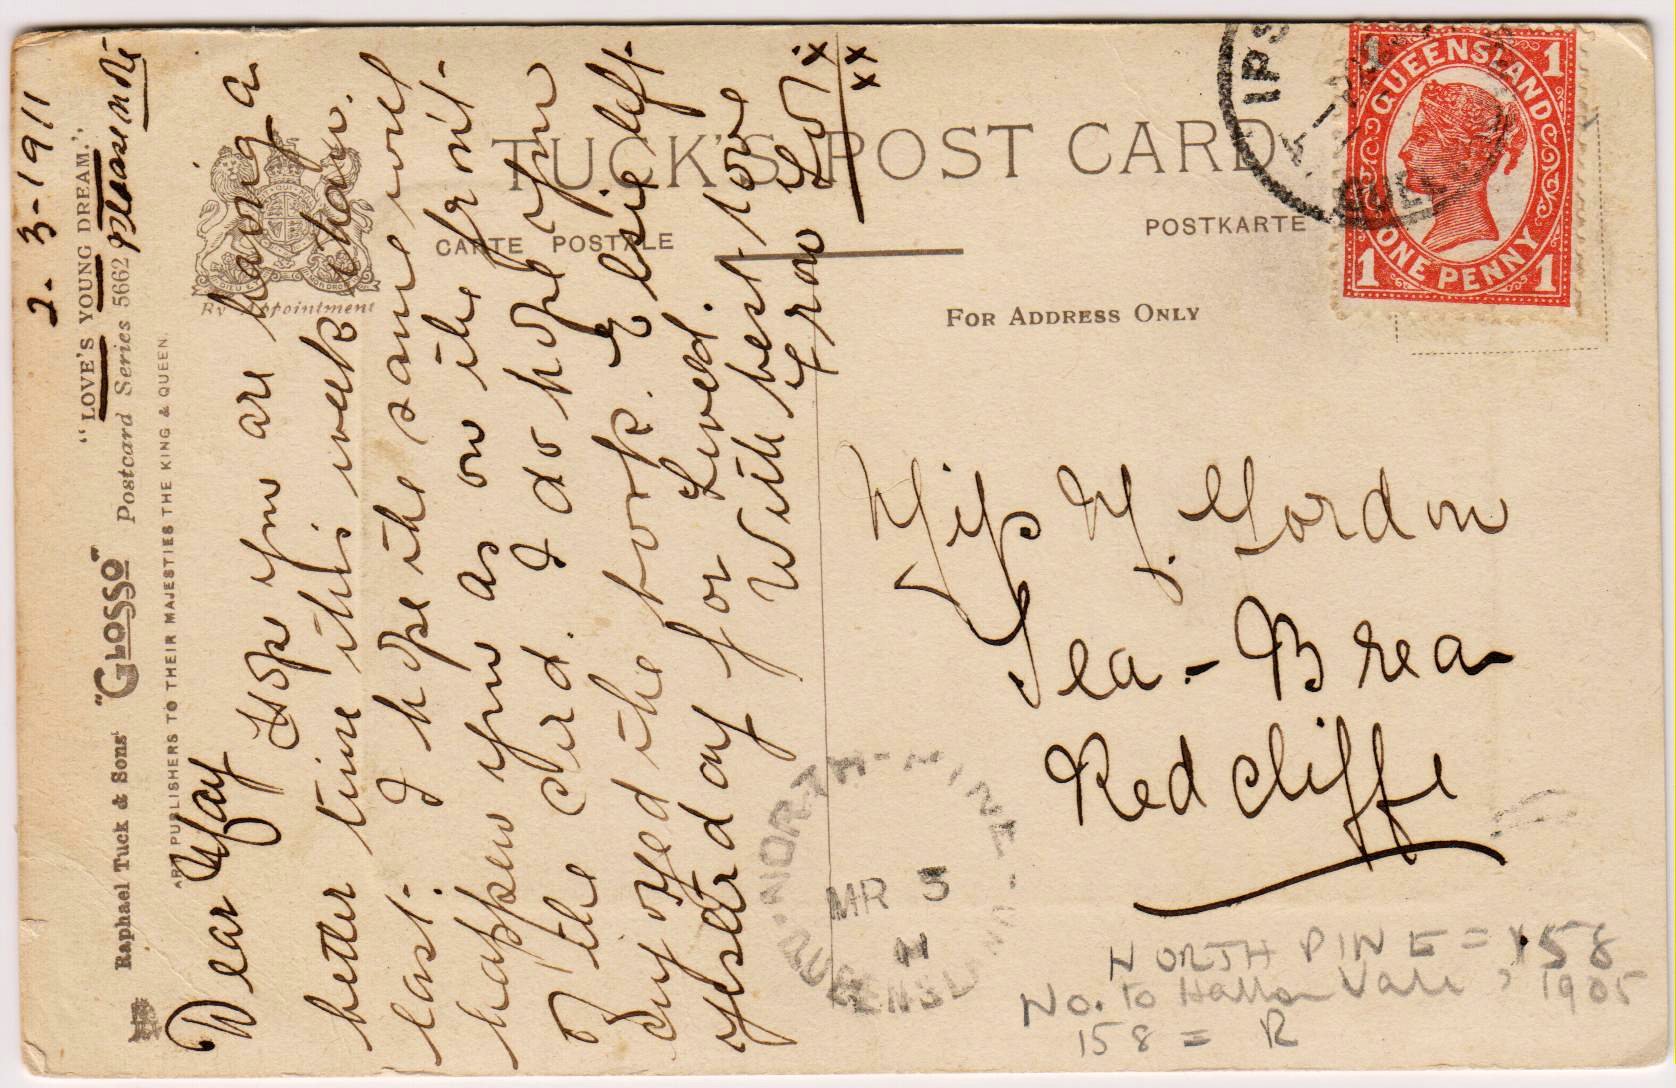 2-3-1911
"LOVE'S YOUNG DREAM." Please note
Raphael Tuck & Sons' "GLOSSO" Postcard Series 5662
ART PUBLISHERS TO THEIR MAJESTIES THE KING & QUEEN.
By Appointment
TUCK'S POST CARD
CARTE POSTALE
POSTKARTE
FOR ADDRESS ONLY
Dear May
Hope you are having a
better time this week than
last. I hope the same wont
happen you as on the front
of the card. I do hope you
enjoyed the tork. & Elsie left
yesterday for
With best love
from
xx
xx
Miss M. Gordon
Sea-Brea
Redcliffe
QUEENSLAND
ONE PENNY
1 1
1 1
IPS
NORTH-PINE
MR 3
11
QUEENSLAND
NORTH PINE = 158
No. to Hatton Vale, 1905
158 = R